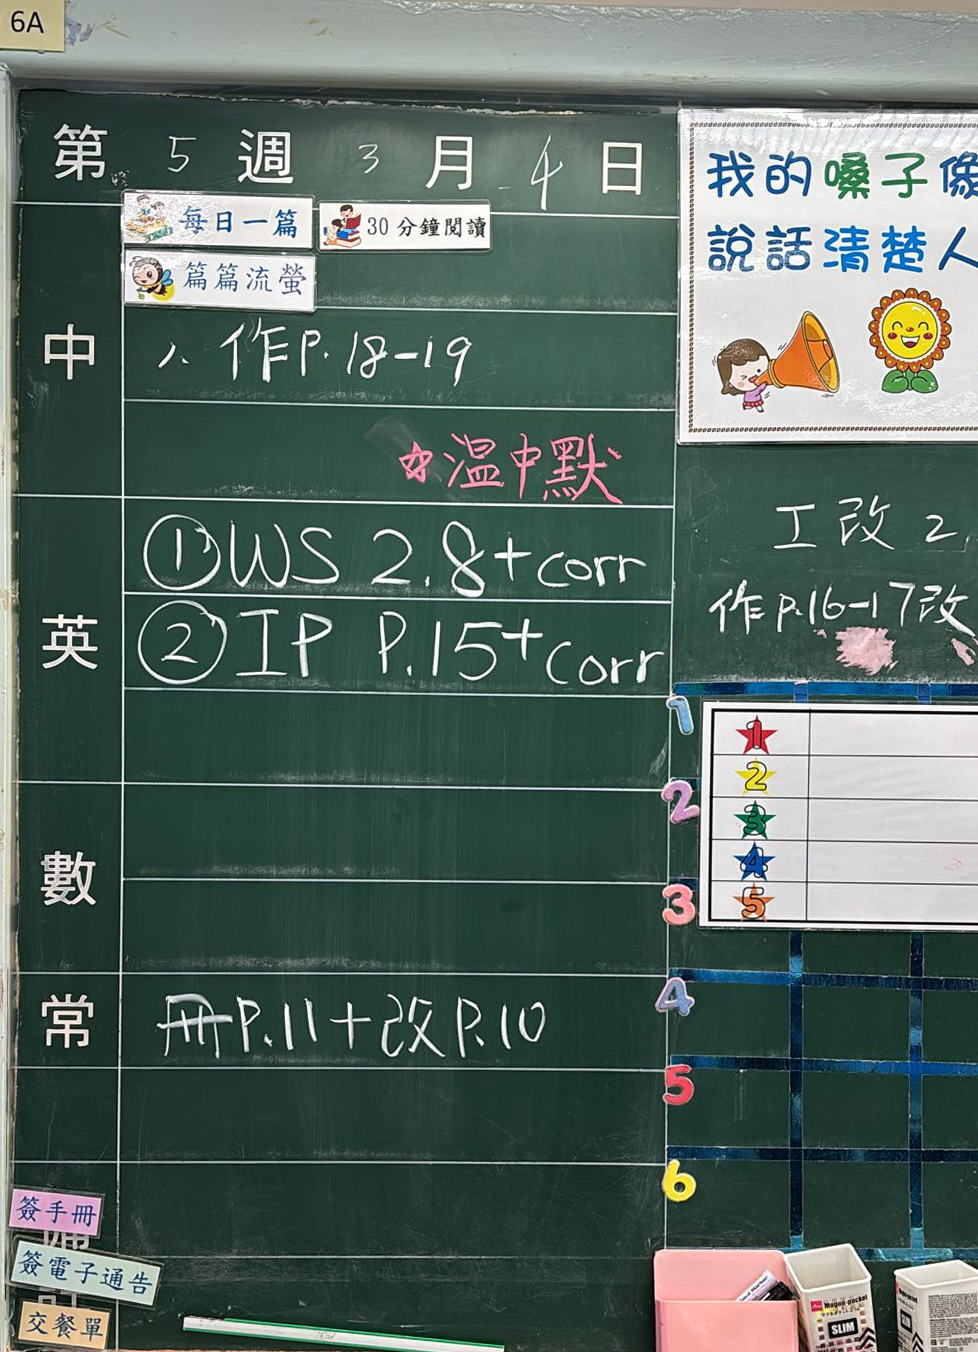 6A
第 5 週 3 月 4 日
每日一篇 30分鐘閱讀
篇篇流螢
中
1. 作P.18-19
☆溫中默
英
①WS 2.8+corr
②IP P.15+corr
數
常
冊P.11+改P.10
簽手冊
簽電子通告
交餐單
我的嗓子像
說話清楚人
工改2
作P.16-17改
1
2
3
4
5
1
2
3
4
5
6
SLIM